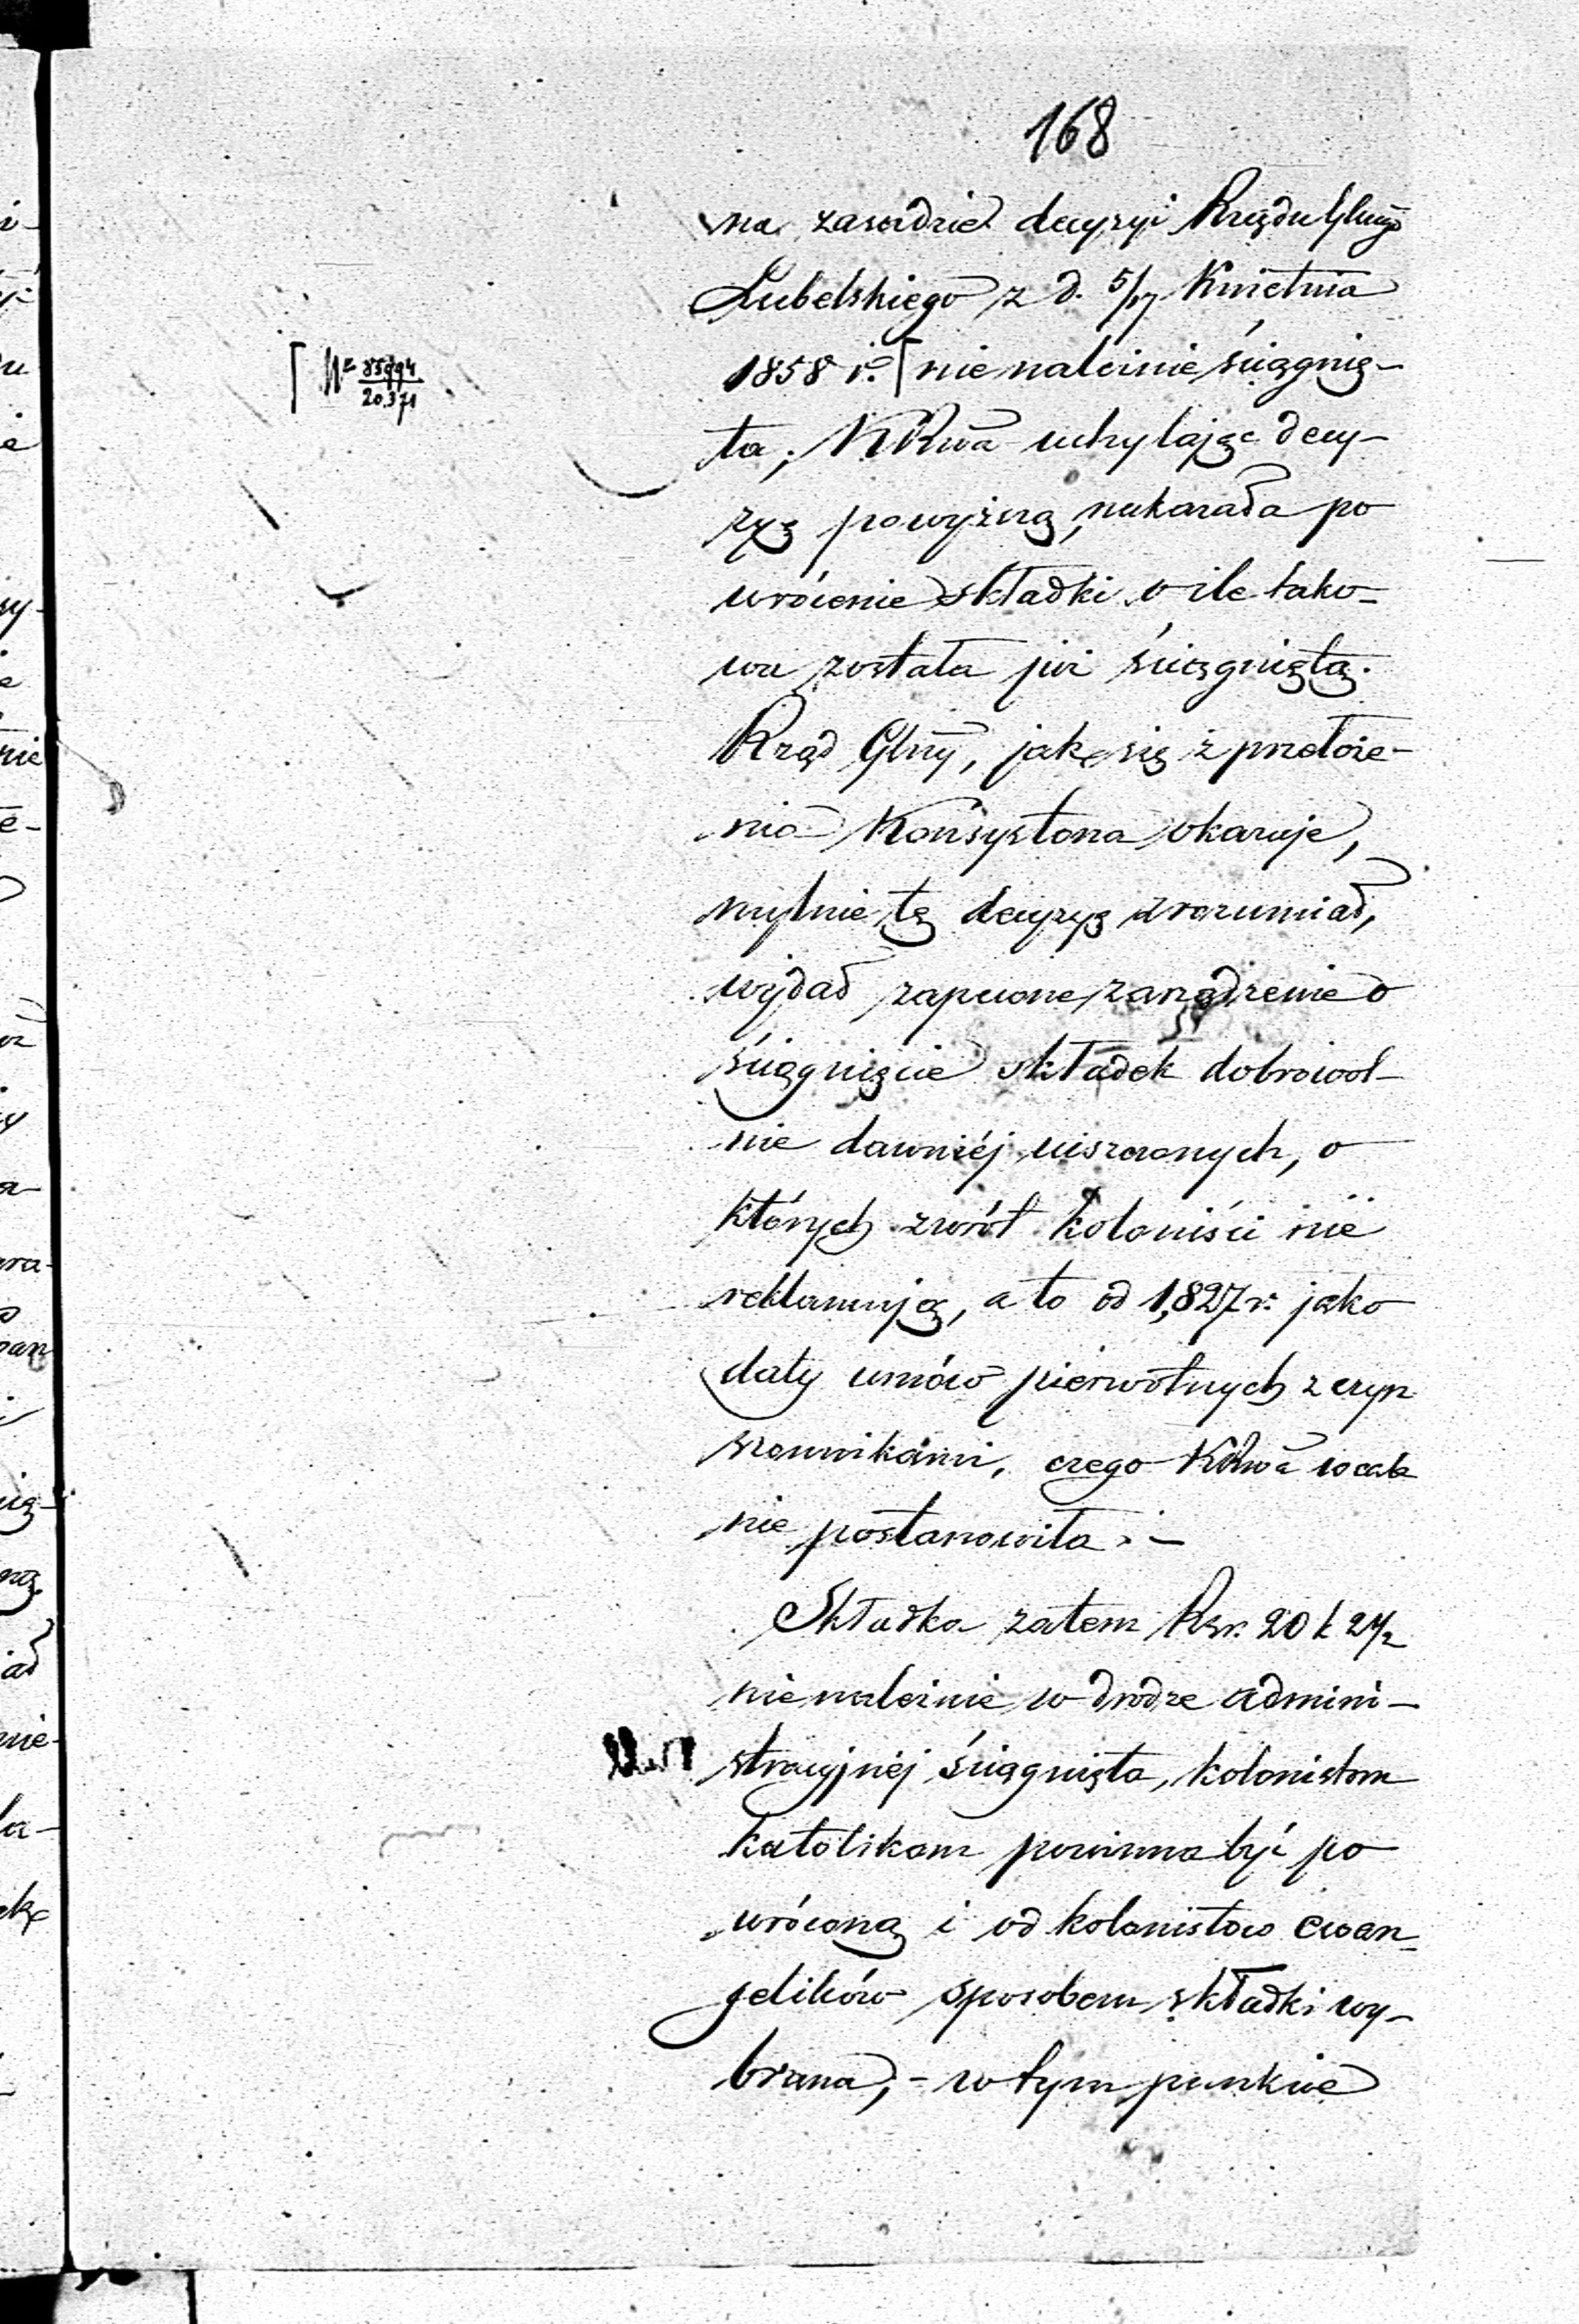 168
na zasadzie decyzyi Rządu Glnego
Lubelskiego z d. 5/17 Kwietnia
1858 r. [ nienależnie ściągnię-
[ Nr 85994/20371
ta; KRwa uchylając decy-
zyę powyższą, nakazała po
wrócenie składki o ile tako-
wa została już ściągniętą.
Rząd Glny, jak się z przełoże-
nia Konsystorza okazuje,
mylnie tę decyzyę zrozumiał,
wydał zapewne zarządzenie o
ściągnięcie składek dobrowol-
nie dawniéj uiszczonych, o
których zwrót koloniści nie
reklamują, a to od 1827 r. jako
daty umów pierwotnych z czyn
szownikami, czego KRwa wcale
nie postanowiła. –
Składka zatem Rsr. 20 k 24/2
nienależnie w drodze admini-
stracyjnéj ściągnięta, kolonistom
katolikom powinna być po
wróconą i od kolonistów ewan-
gelików sposobem składki wy-
brana, - w tym punkcie